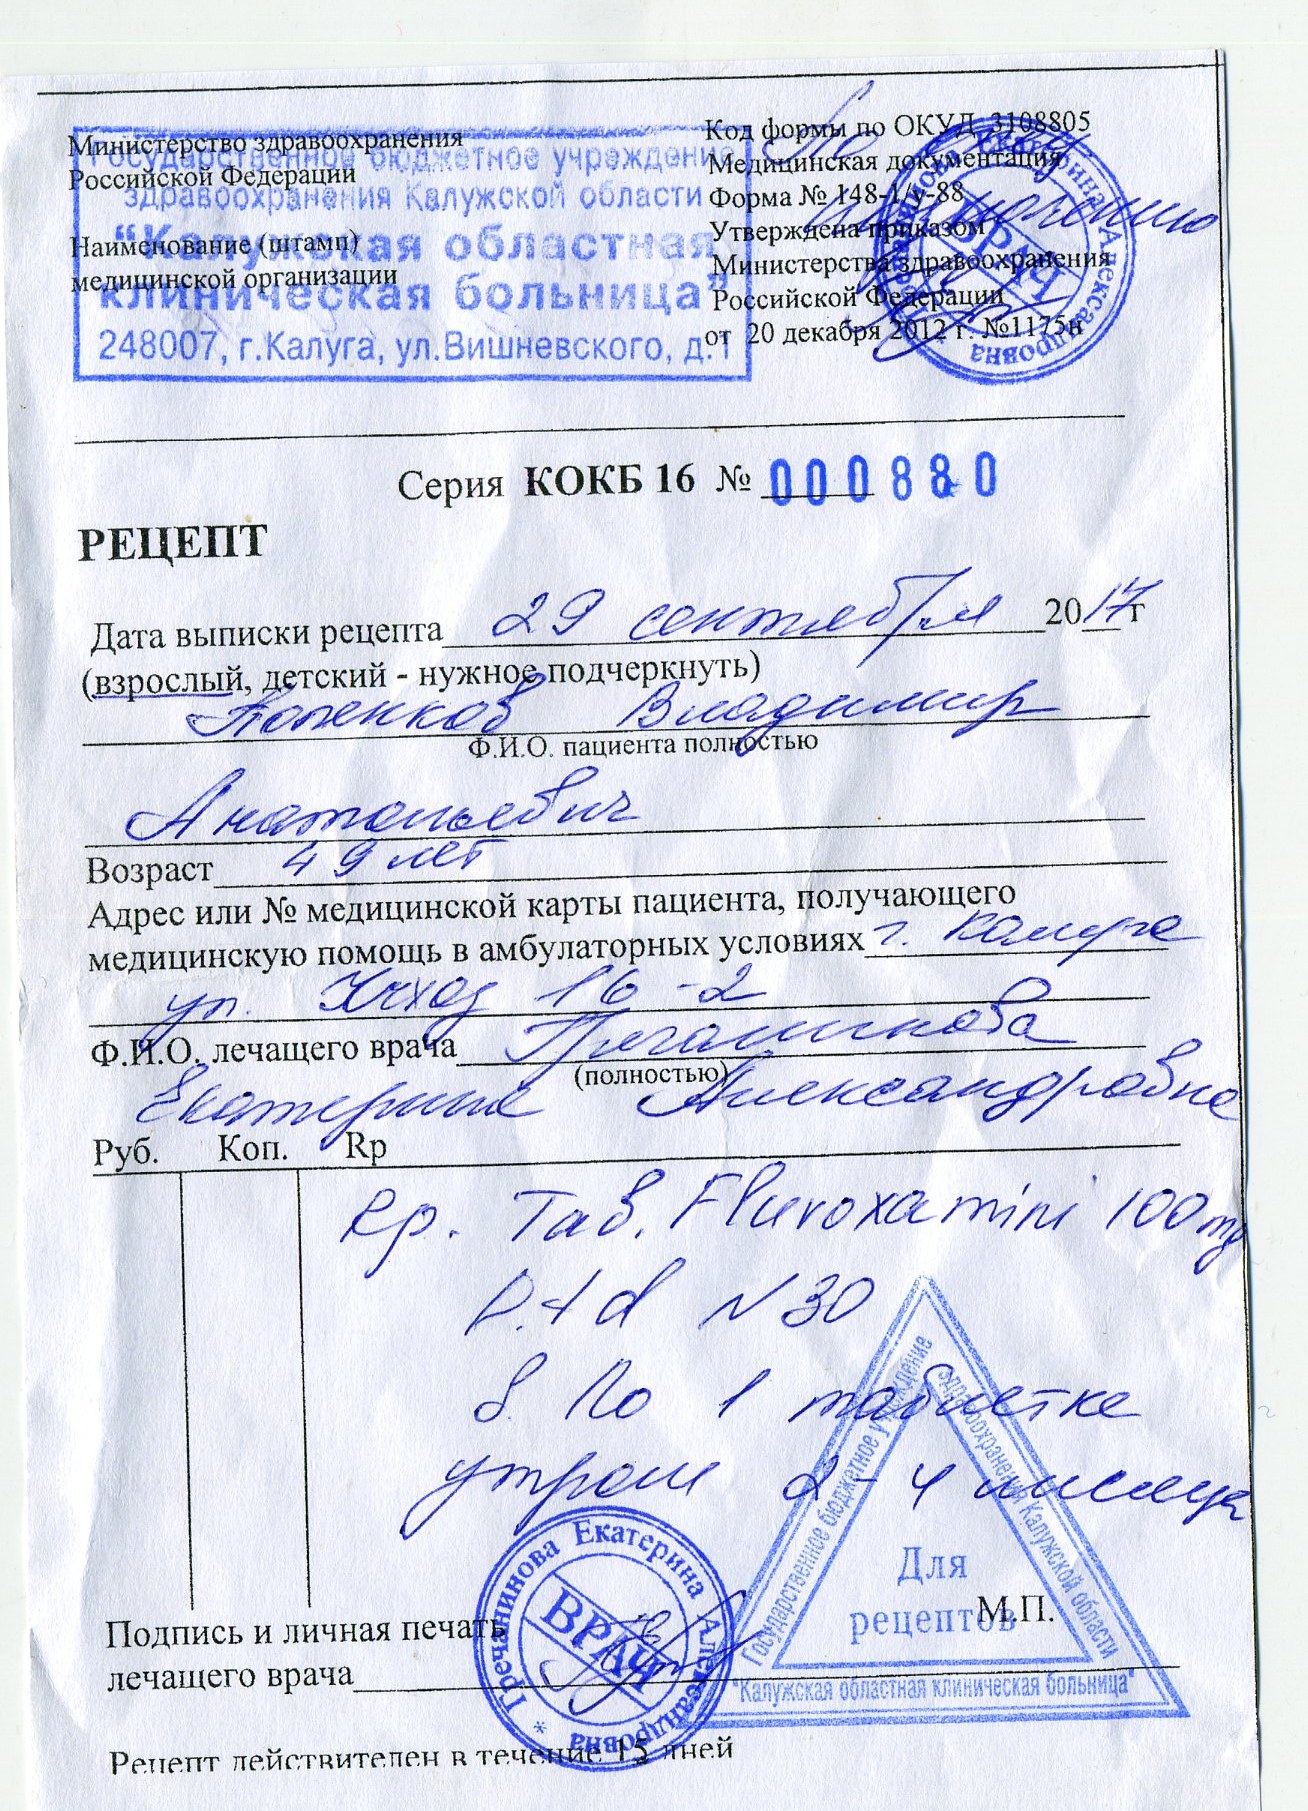 Министерство здравоохранения
Российской Федерации
Наименование (штамп)
медицинской организации
Государственное бюджетное учреждение
здравоохранения Калужской области
"Калужская областная
клиническая больница"
248007, г.Калуга, ул.Вишневского, д.1
Код формы по ОКУД 3108805
Медицинская документация
Форма № 148-1/у-88
Утверждена приказом
Министерства здравоохранения
Российской Федерации
от 20 декабря 2012 г. №1175н
По
Екатерина Александровна
ВРАЧ
Серия КОКБ 16 № 000880
РЕЦЕПТ
Дата выписки рецепта 29 сентября 2017 г
(взрослый, детский - нужное подчеркнуть)
Владимир
Ф.И.О. пациента полностью
Анатольевич
Возраст 49 лет
Адрес или № медицинской карты пациента, получающего
медицинскую помощь в амбулаторных условиях г. Калуга
ул. 16-2
Ф.И.О. лечащего врача Гречанинова
(полностью)
Екатерина Александровна
Руб. Коп. Rp
Rp. Tab. Fluvoxamini 100 mg
D.t.d N 30
S. По 1 таблетке
утром 2-4 месяца
Гречанинова Екатерина Александровна *
ВРАЧ
Государственное бюджетное учреждение
здравоохранения Калужской области
"Калужская областная клиническая больница"
Для
рецептов
М.П.
Подпись и личная печать
лечащего врача
Рецепт действителен в течение 15 дней